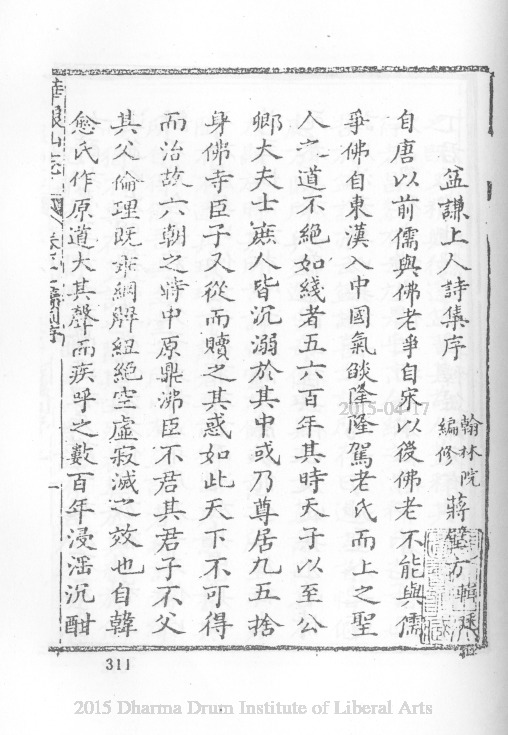 益謙上人詩集序
翰林院
編修
蔣
方輯
自唐以前儒與佛老爭自宋以後佛老不能與儒
爭佛自東漢入中國氣燄隆隆駕老氏而上之聖
人之道不絕如綫者五六百年其時天子以至公
卿大夫士庶人皆沉溺於其中或乃尊居九五捨
身佛寺臣子又從而贖之其惑如此天下不可得
而治故六朝之時中原鼎沸臣不君其君子不父
其父倫理既斁綱解紐絕空虛寂滅之效也自韓
愈氏作原道大其聲而疾呼之數百年浸淫沉酣
華銀山志
311
2015-04-17
2015 Dharma Drum Institute of Liberal Arts